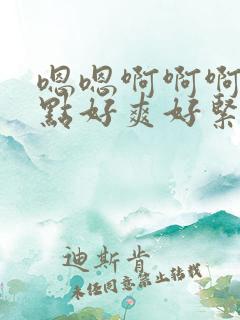 嗯嗯啊啊啊
點好爽好緊
迪斯肯
未经同意禁止转载